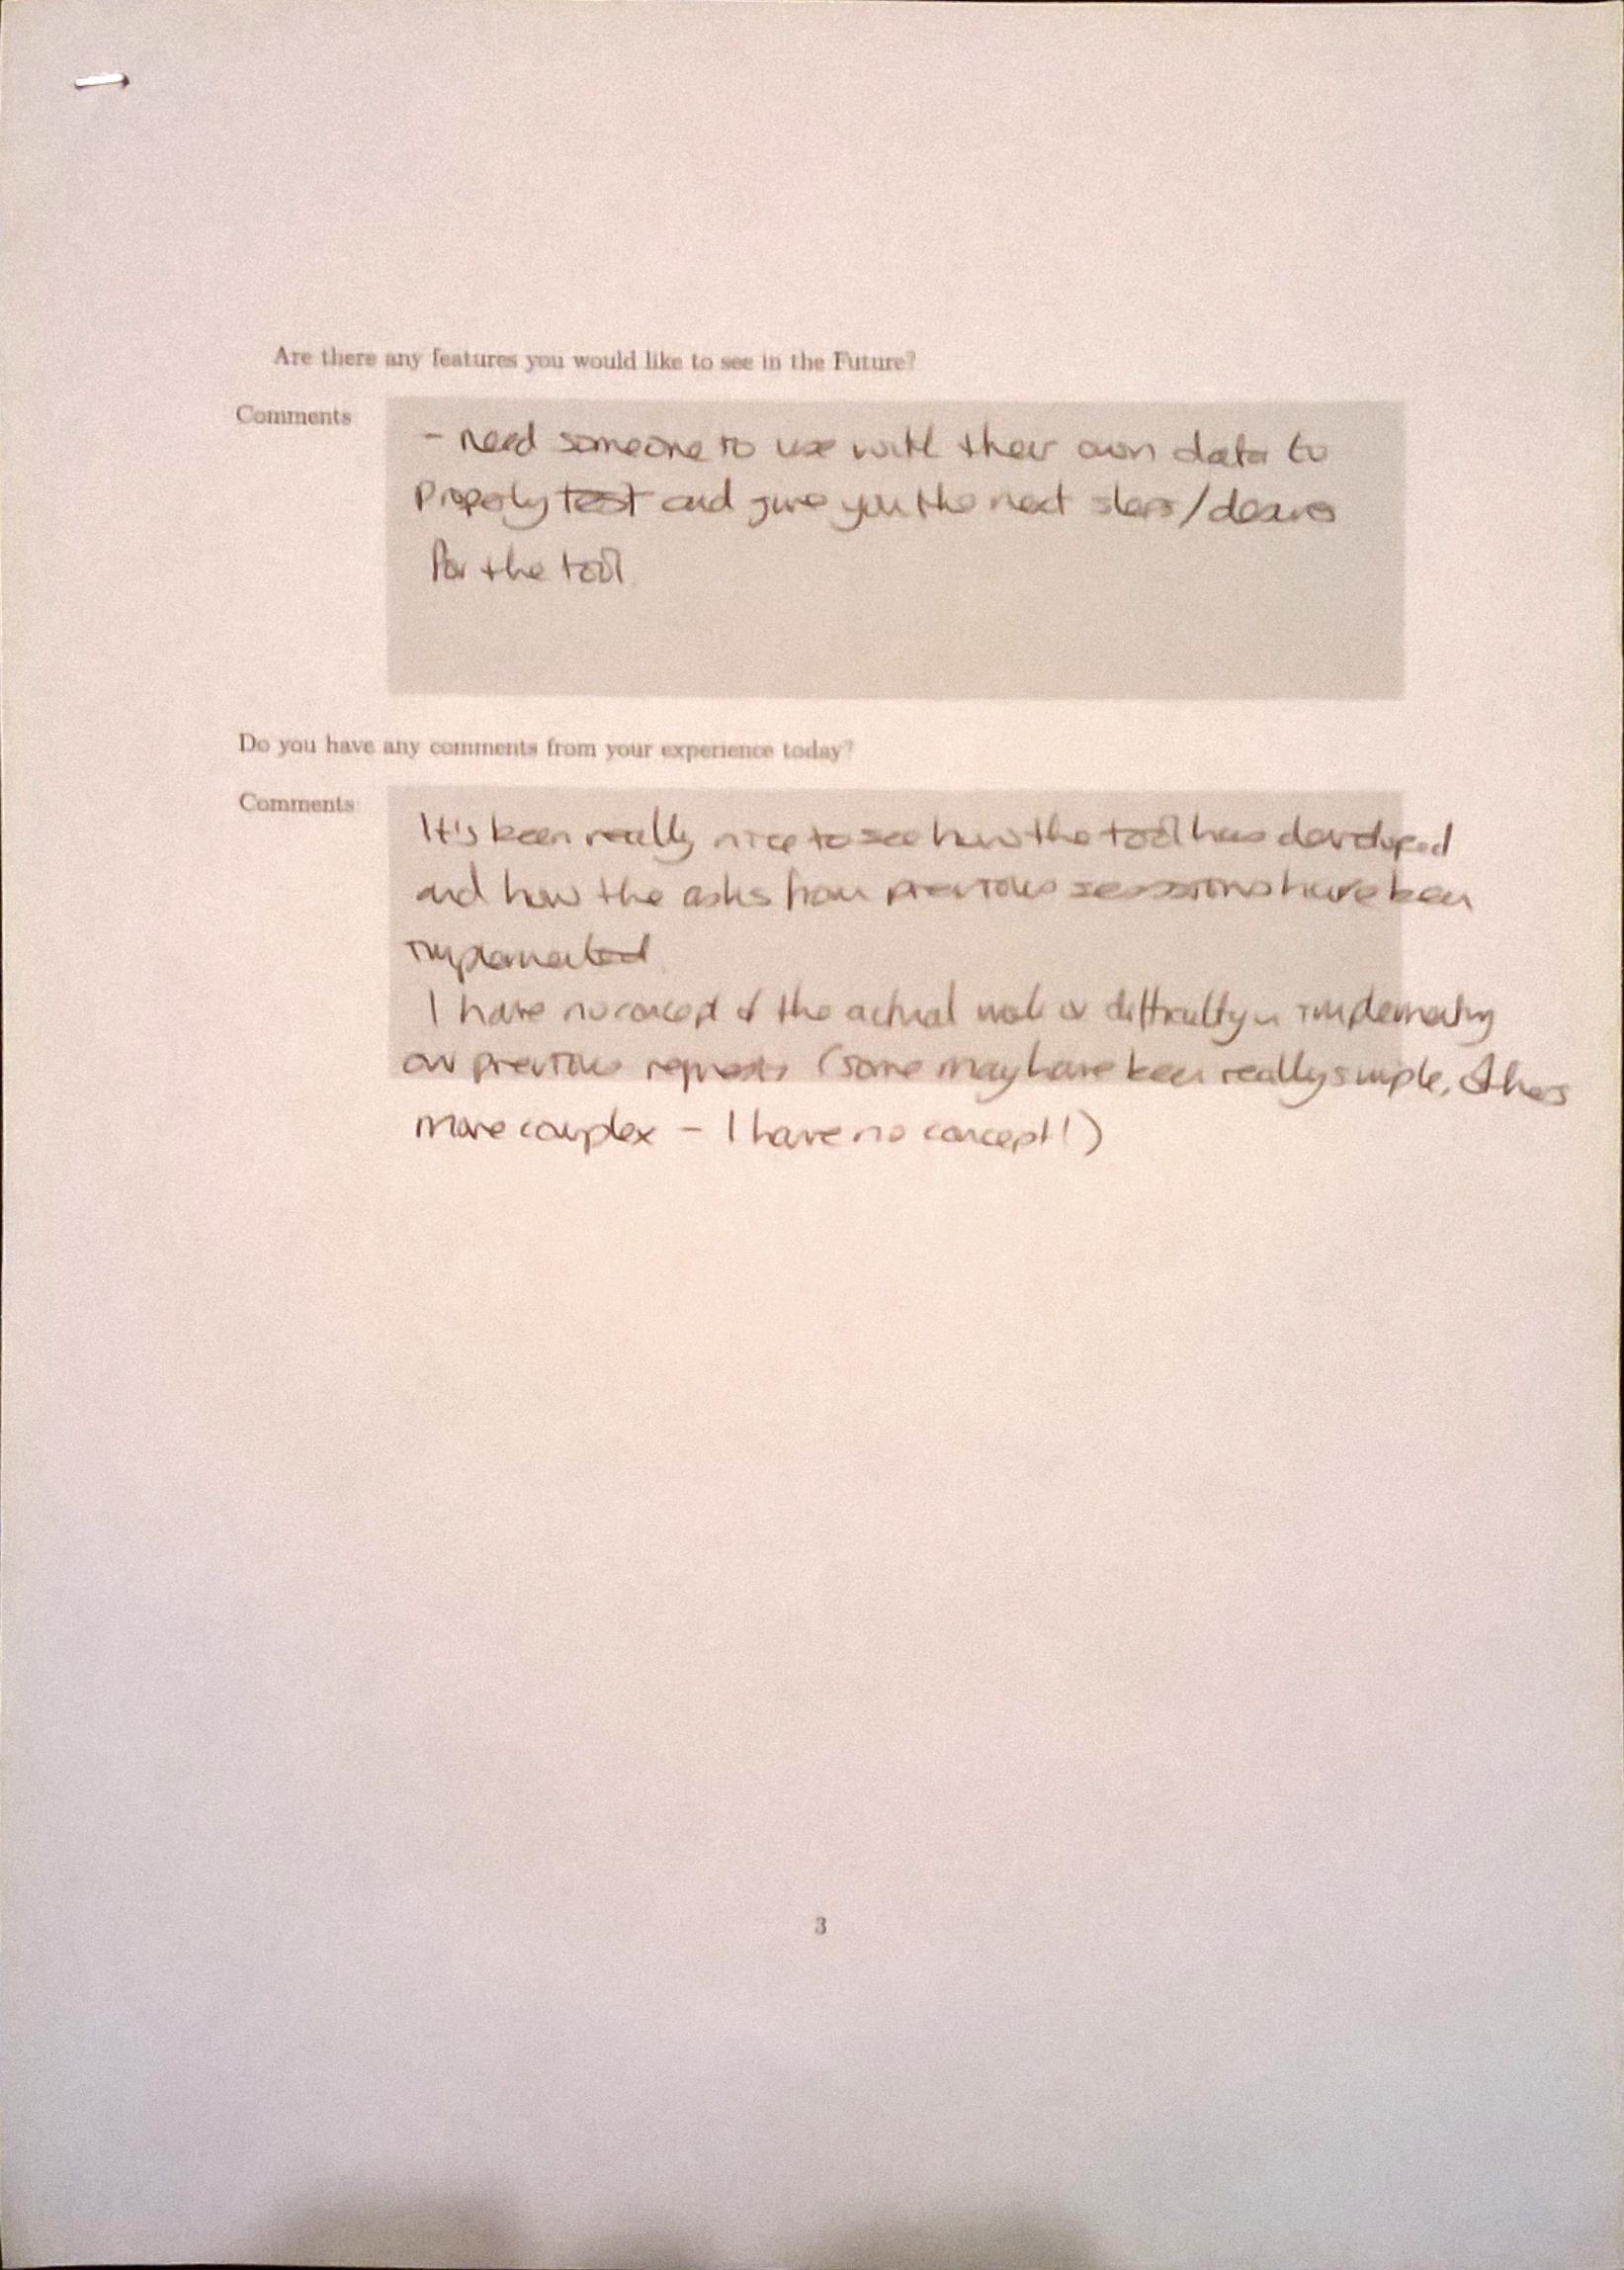 Are there any features you would like to see in the Future?
Comments
- need someone to use with their own data to
properly test and give you the next steps/desires
for the tool.
Do you have any comments from your experience today?
Comments
It's been really nice to see how the tool has developed
and how the asks from previous sessions have been
implemented.
I have no concept of the actual work or difficulty in implementing
our previous requests (some may have been really simple, others
more complex - I have no concept!)
3